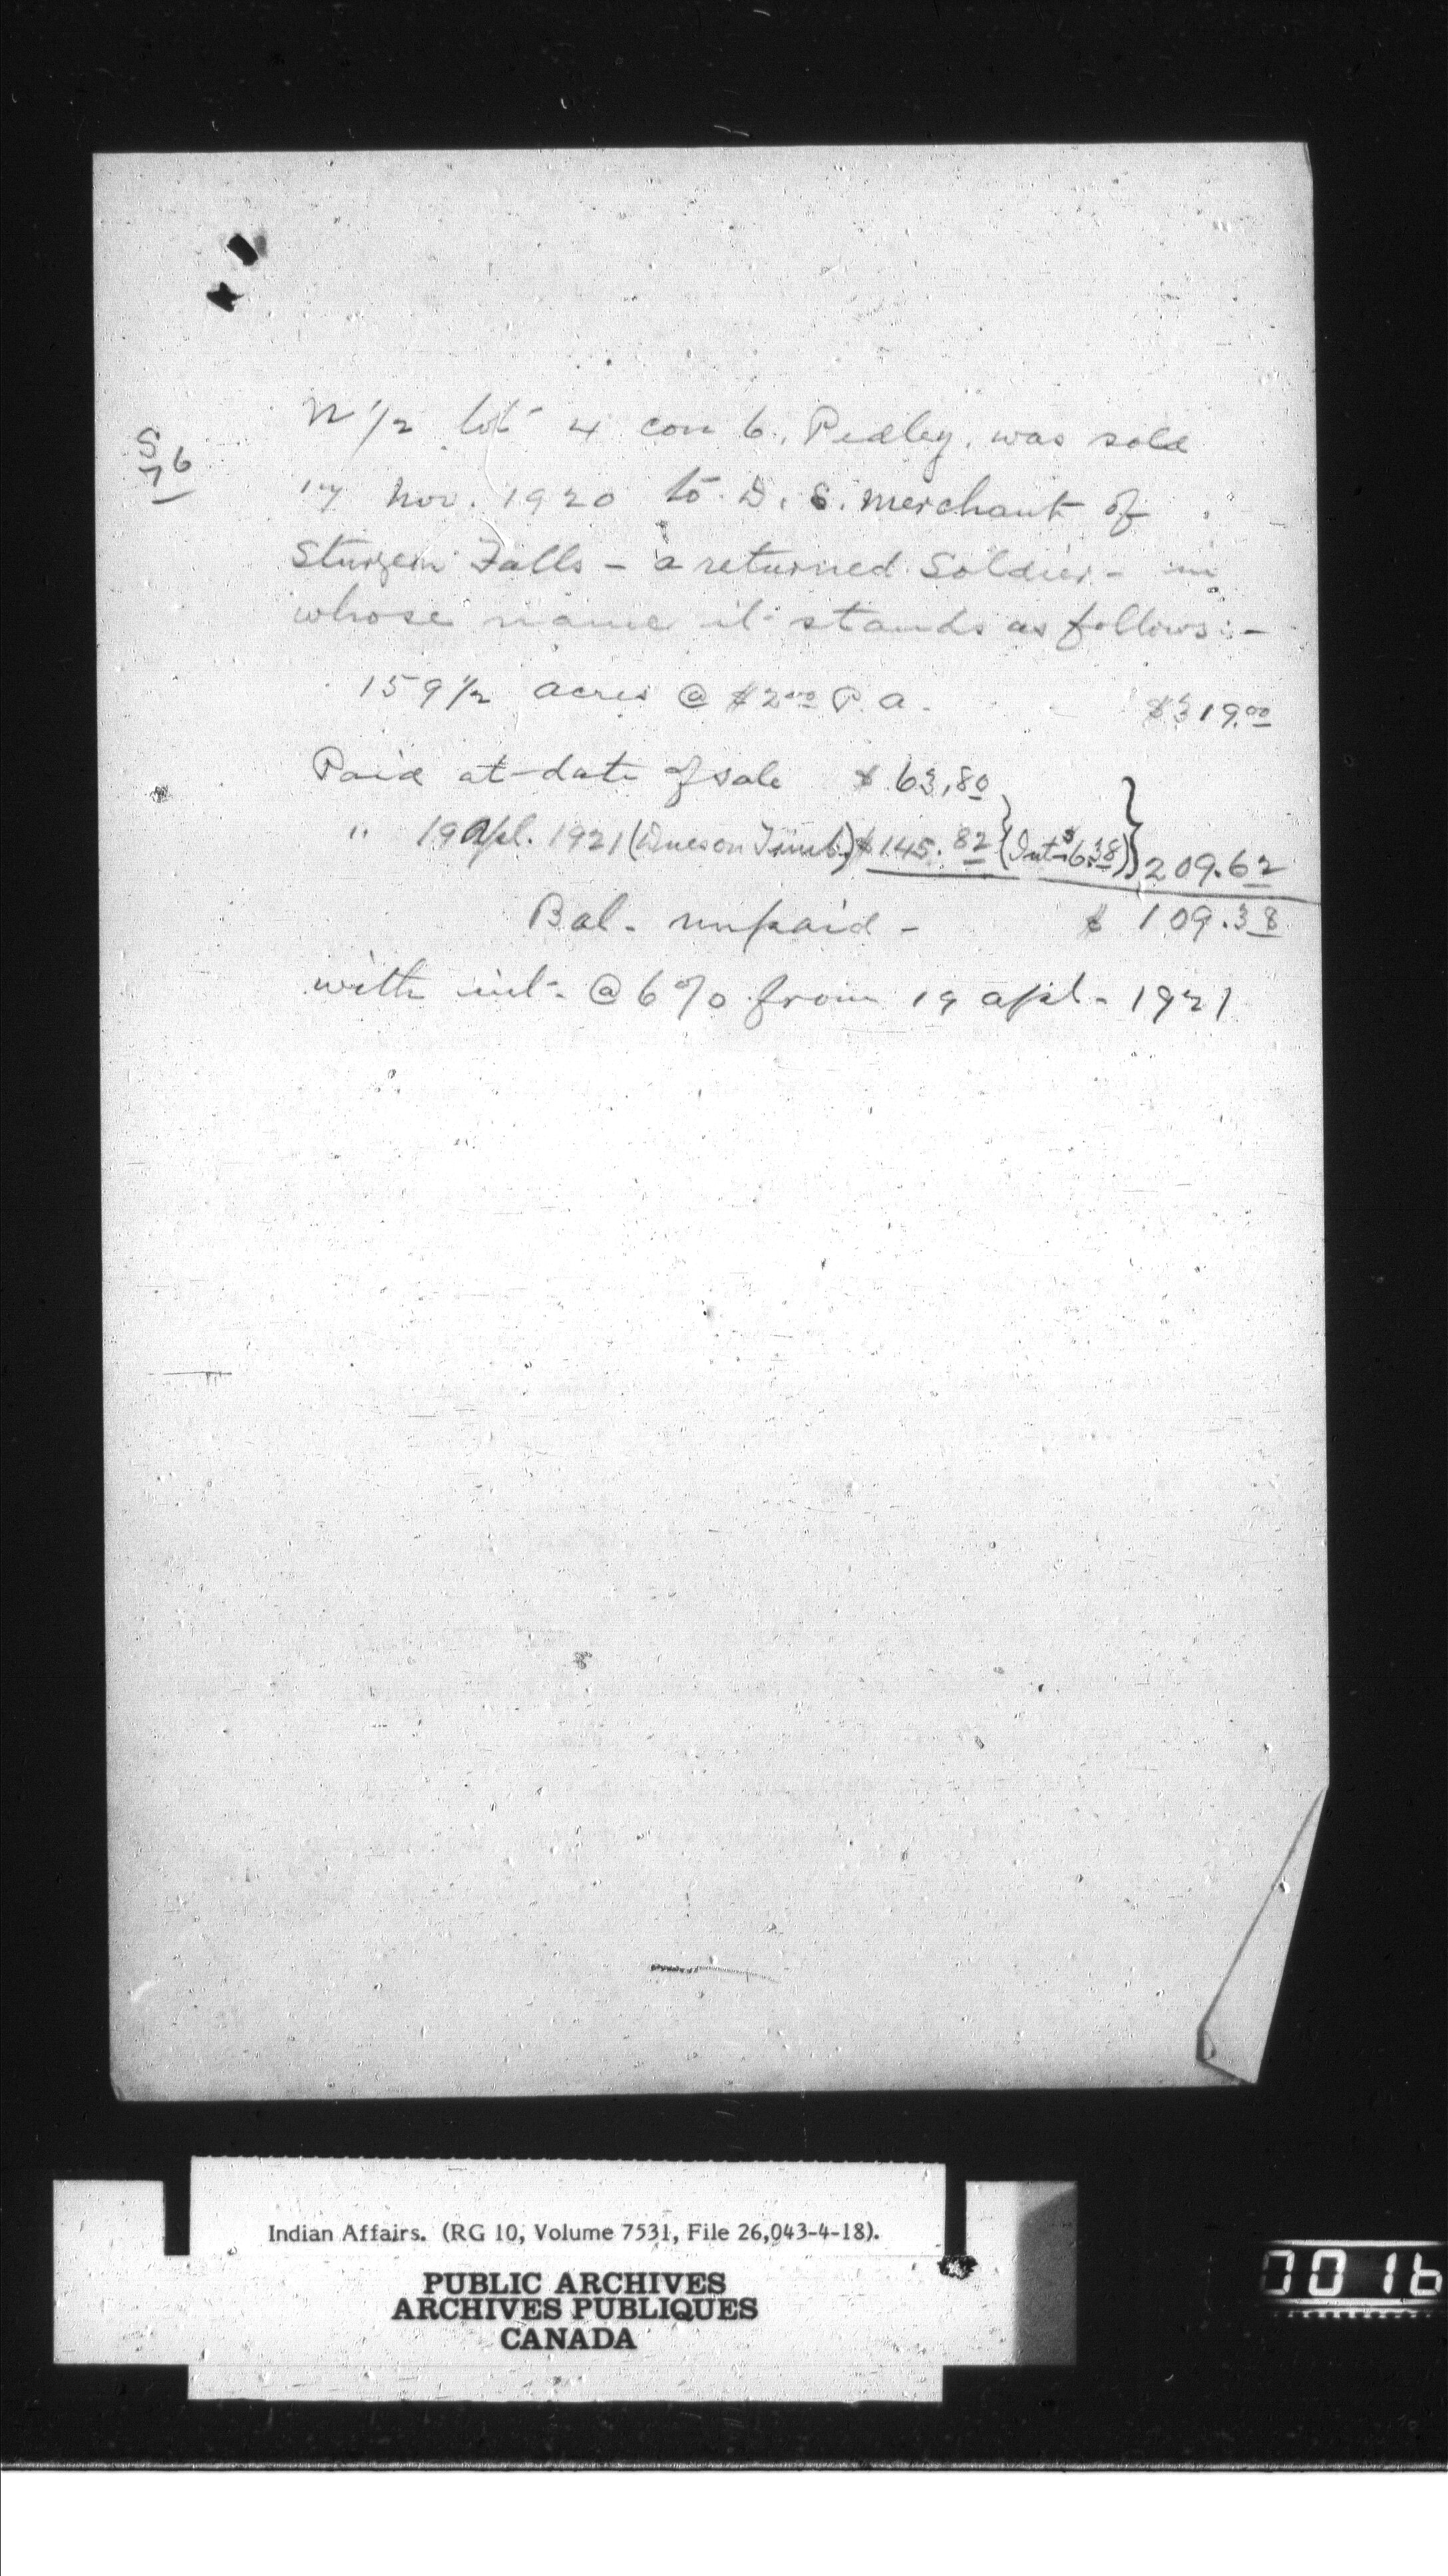 N 1/2 lot 4 con 6. Pedley. was sold
S
76
17 Nov. 1920 to D. S. Merchant of
Sturgeon Falls - a returned Soldier - in
whose name it stands as follows:-
159 1/2 acres @ $2.00 P. A. $319.00
Paid at date of sale $63.80
" 19 Apl. 1921 (Dues on Timb.) $145.82 (Int $6.38) 209.62
Bal. unpaid - $109.38
with int. @ 6% from 19 apl - 1921
Indian Affairs. (RG 10, Volume 7531, File 26,043-4-18).
PUBLIC ARCHIVES
ARCHIVES PUBLIQUES
CANADA
0016